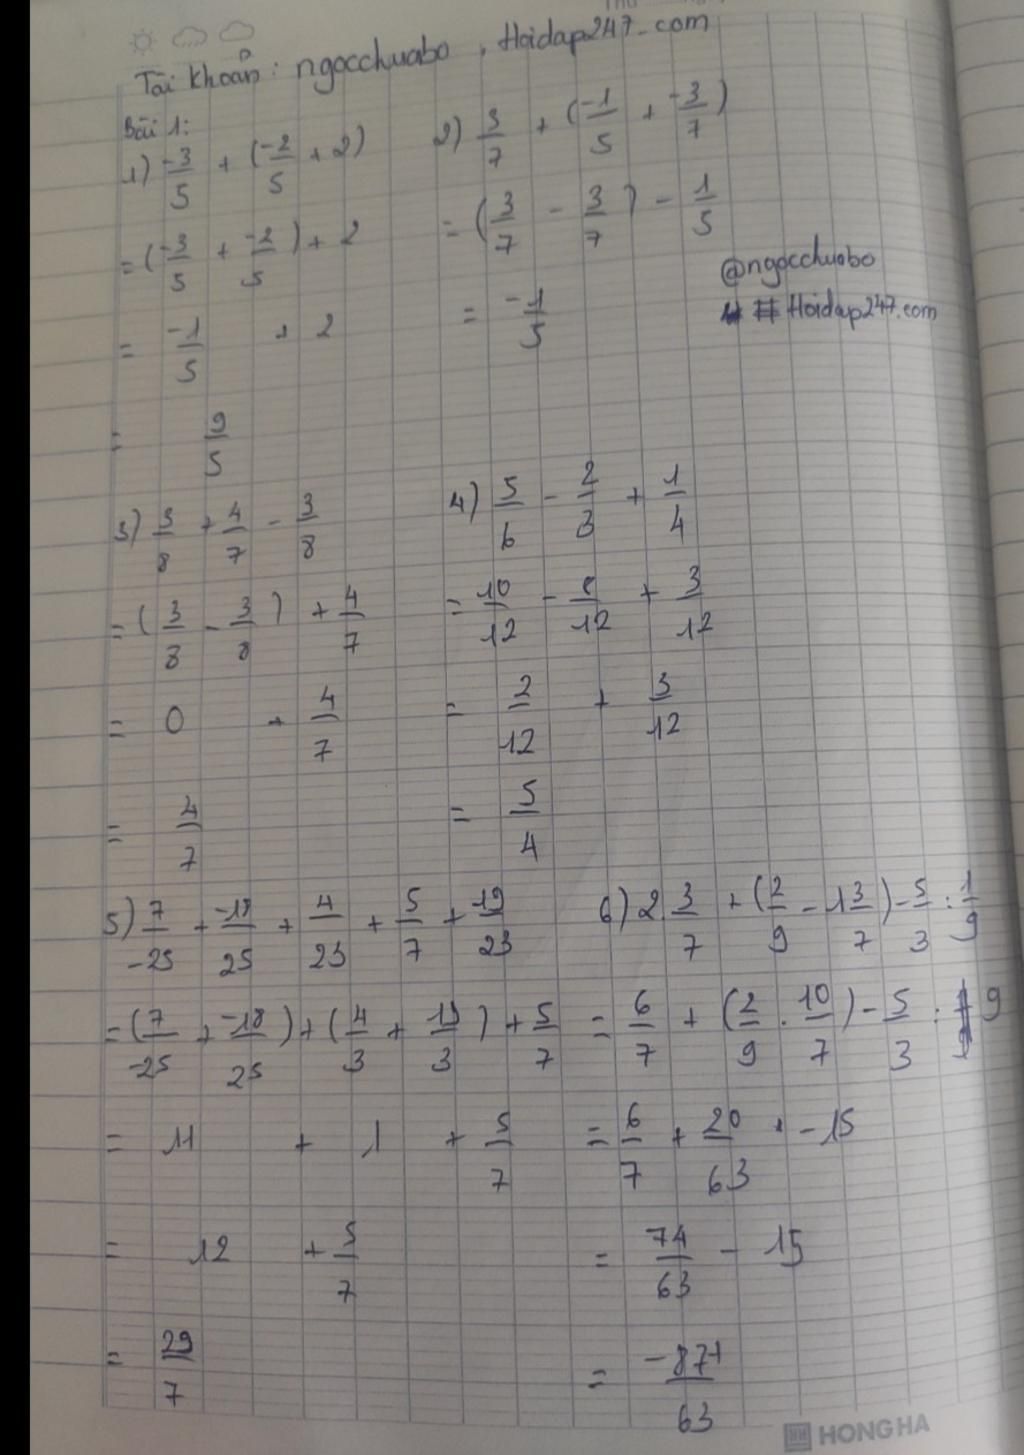 Tài khoản: ngocchuabo, Hoidap247.com
Bài 1:
1) -3/5 + (-2/5 + 2)
= (-3/5 + -2/5) + 2
= -1/5 + 2
= 9/5
2) 3/7 + (-1/5 + -3/7)
= (3/7 - 3/7) - 1/5
= -1/5
@ngocchuabo
# Hoidap247.com
3) 3/8 + 4/7 - 3/8
= (3/8 - 3/8) + 4/7
= 0 + 4/7
= 4/7
4) 5/6 - 2/3 + 1/4
= 10/12 - 8/12 + 3/12
= 2/12 + 3/12
= 5/4
5) 7/-25 + -18/25 + 4/23 + 5/7 + 19/23
= (7/-25 + -18/25) + (4/3 + 19/3) + 5/7
= 11 + 1 + 5/7
= 12 + 5/7
= 29/7
6) 2 3/7 + (2/9 - 1 3/7) - 5/3 : 1/9
= 6/7 + (2/9 . 10/7) - 5/3 : 9
= 6/7 + 20/63 + -15
= 74/63 - 15
= -871/63
HONG HA